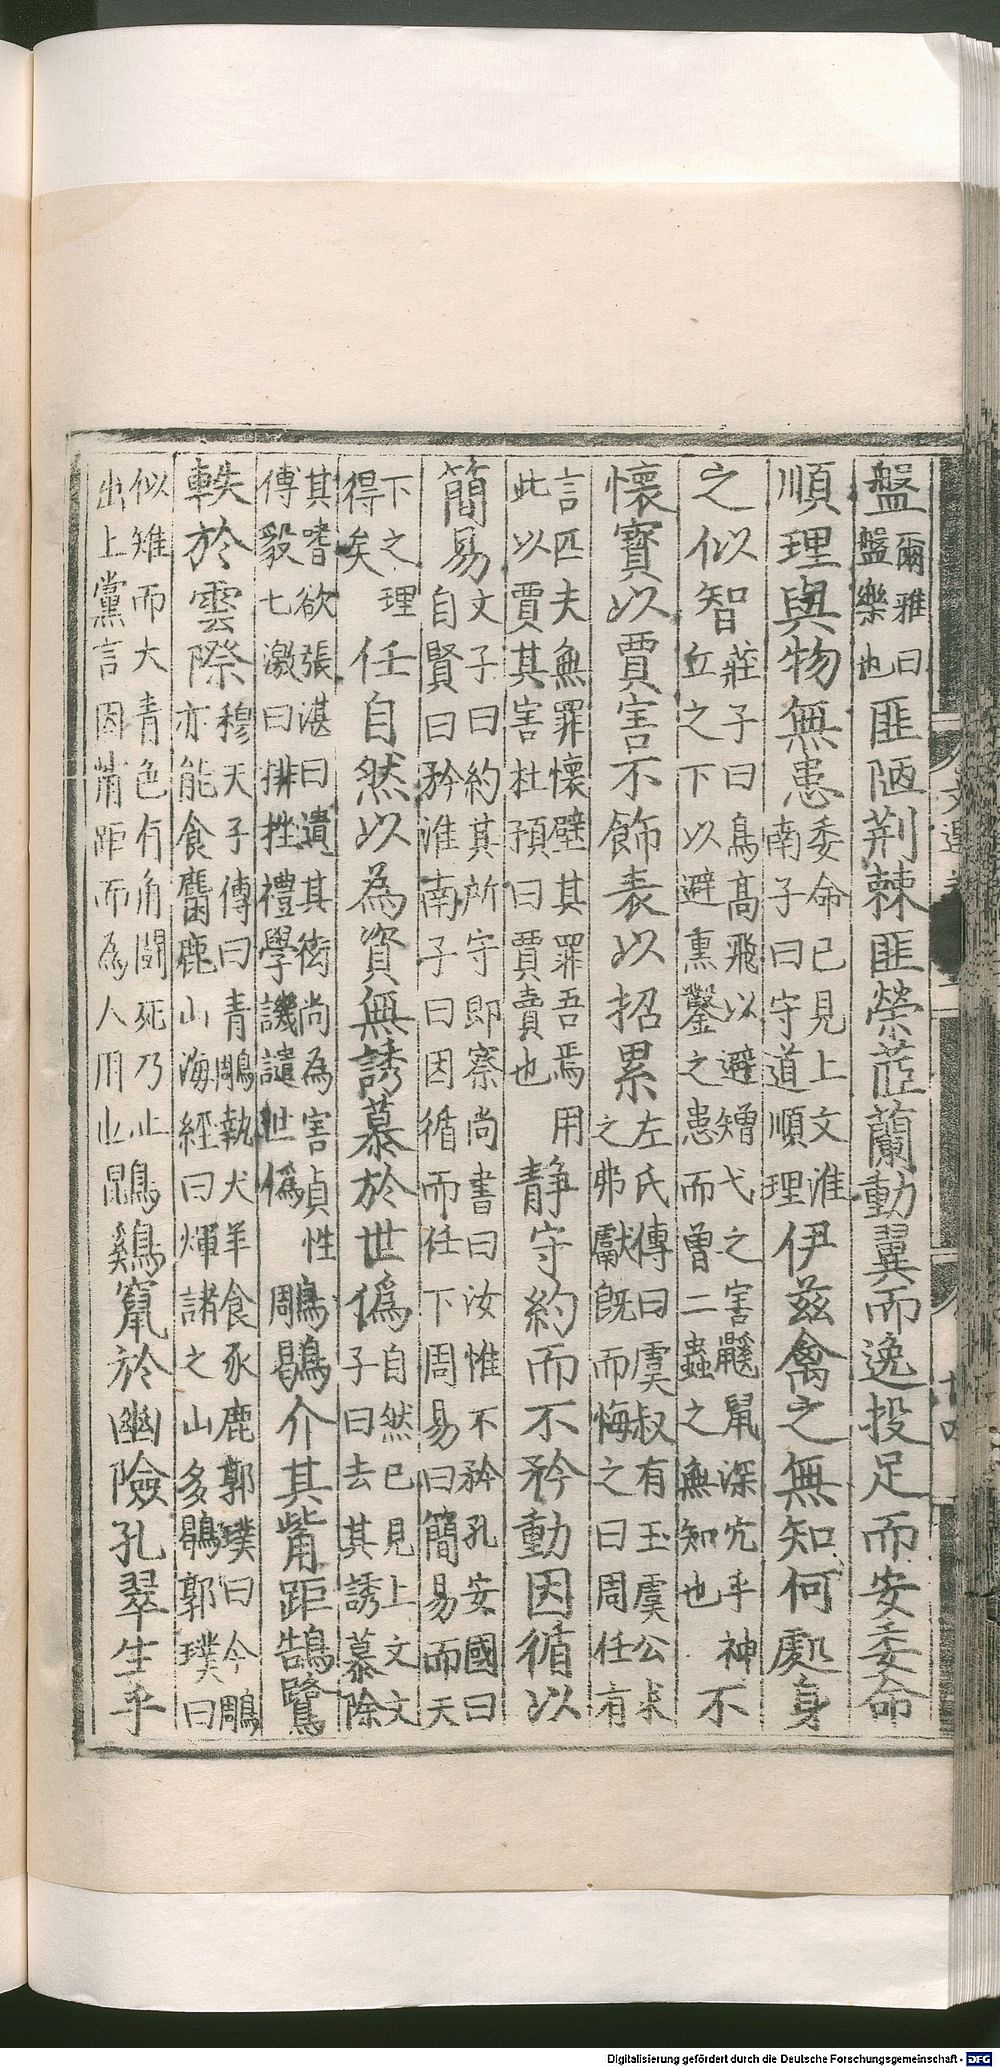 盤爾雅曰盤樂也匪陋荆棘匪榮茝蘭動翼而逸投足而安委命
順理與物無患委命已見上文淮南子曰守道順理伊茲禽之無知何處身
之似智莊子曰鳥高飛以避矰弋之害鼷鼠深穴乎神丘之下以避熏鑿之患而曾二蟲之無知也不
懷寳以賈害不飾表以招累左氏傳曰虞叔有玉虞公求之弗獻旣而悔之曰周任有
言匹夫無罪懷璧其罪吾焉用此以賈其害杜預曰賈賣也静守約而不矜動因循以
簡易文子曰約其所守即察尚書曰汝惟不矜孔安國曰自賢曰矜淮南子曰因循而任下周易曰簡易而天
下之理得矣任自然以為資無誘慕於世偽自然已見上文文子曰去其誘慕除
其嗜欲張湛曰遺其衒尚為害貞性傅毅七激曰排挫禮學譏譴世偽鵰鶡介其觜距鵠鷺
軼於雲際穆天子傳曰青鵰執犬羊食豕鹿郭璞曰今鵰亦能食麏鹿山海經曰煇諸之山多鶡郭璞曰
似雉而大青色有角鬪死乃止出上黨言因觜距而為人用也鵾鷄竄於幽險孔翠生乎
Digitalisierung gefördert durch die Deutsche Forschungsgemeinschaft - DFG